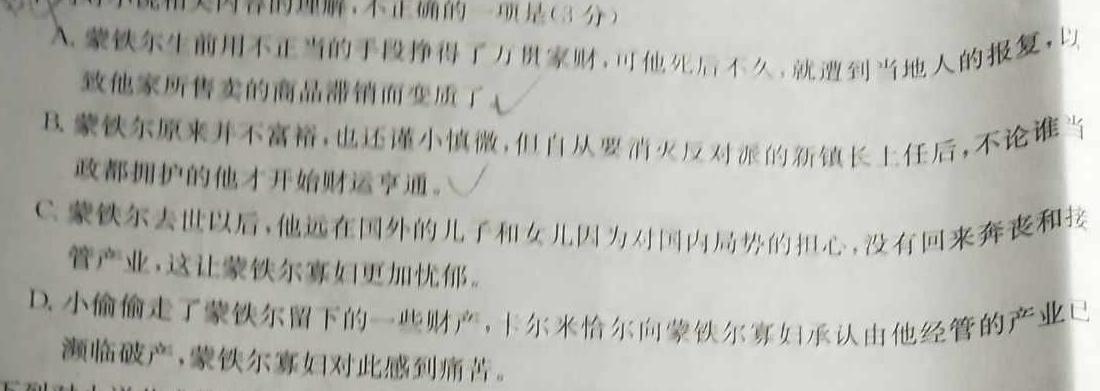 相关内容的理解,不正确的一项是(3分)
A.蒙铁尔生前用不正当的手段挣得了万贯家财,可他死后不久,就遭到当地人的报复,以
致他家所售卖的商品滞销而变质了。
B.蒙铁尔原来并不富裕,也还谨小慎微,但自从要消灭反对派的新镇长上任后,不论谁当
政都拥护的他才开始财运亨通。
C.蒙铁尔去世以后,他远在国外的儿子和女儿因为对国内局势的担心,没有回来奔丧和接
管产业,这让蒙铁尔寡妇更加忧郁。
D.小偷偷走了蒙铁尔留下的一些财产,卡尔米恰尔向蒙铁尔寡妇承认由他经管的产业已
濒临破产,蒙铁尔寡妇对此感到痛苦。